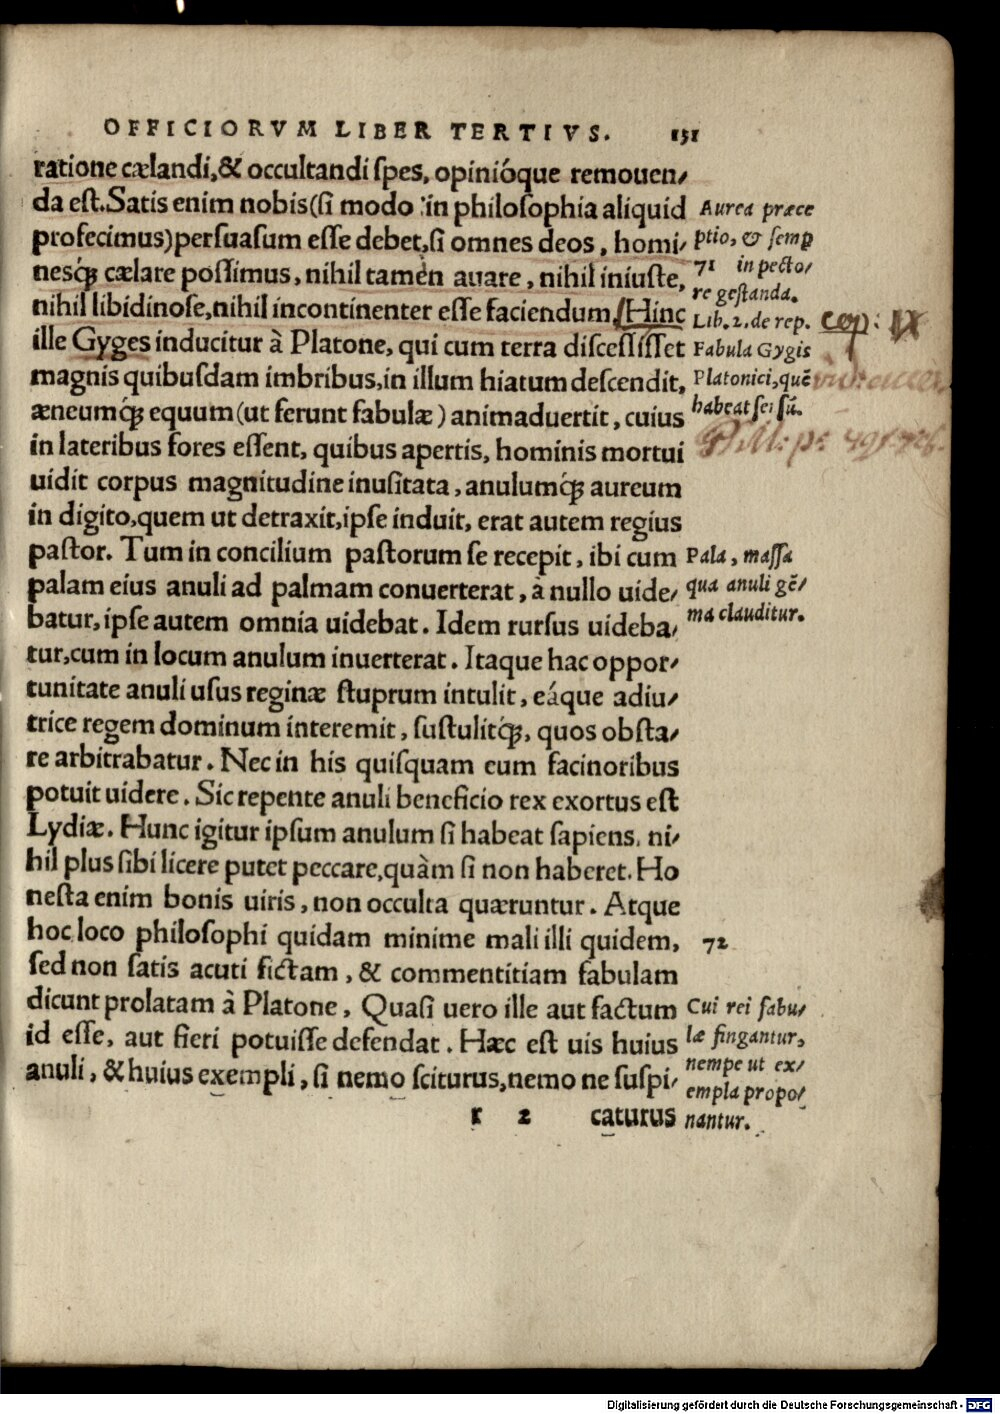 OFFICIORVM LIBER TERTIVS. 151
ratione cælandi,& occultandi ſpes, opinióque remouen⸗
da eſt.Satis enim nobis(ſi modo in philoſophia aliquid
profecimus)perſuaſum eſſe debet,ſi omnes deos, homi⸗
nesq́; cælare poſſimus, nihil tamen auare, nihil iniuſte,
nihil libidinoſe,nihil incontinenter eſſe faciendum. Hinc
ille Gyges inducitur à Platone, qui cum terra diſceſſiſſet
magnis quibuſdam imbribus,in illum hiatum deſcendit,
æneumq́; equum(ut ferunt fabulæ) animaduertit, cuius
in lateribus fores eſſent, quibus apertis, hominis mortui
uidit corpus magnitudine inuſitata, anulumq́; aureum
in digito,quem ut detraxit,ipſe induit, erat autem regius
paſtor. Tum in concilium paſtorum ſe recepit, ibi cum
palam eius anuli ad palmam conuerterat, à nullo uide⸗
batur,ipſe autem omnia uidebat. Idem rurſus uideba⸗
tur,cum in locum anulum inuerterat. Itaque hac oppor⸗
tunitate anuli uſus reginæ ſtuprum intulit, eáque adiu⸗
trice regem dominum interemit, ſuſtulitq́;, quos obſta⸗
re arbitrabatur. Nec in his quiſquam eum facinoribus
potuit uidere. Sic repente anuli beneficio rex exortus eſt
Lydiæ. Hunc igitur ipſum anulum ſi habeat ſapiens, ni⸗
hil plus ſibi licere putet peccare,quàm ſi non haberet. Ho
neſta enim bonis uiris, non occulta quæruntur. Atque
hoc loco philoſophi quidam minime mali illi quidem,
ſed non ſatis acuti fictam, & commentitiam fabulam
dicunt prolatam à Platone, Quaſi uero ille aut factum
id eſſe, aut fieri potuiſſe defendat. Hæc eſt uis huius
anuli, & huius exempli, ſi nemo ſciturus,nemo ne ſuſpi⸗
r 2 caturus
Aurea præce
ptio, & ſemp
71 in pecto⸗
re geſtanda.
Lib. 2. de rep.
Fabula Gygis
Platonici, quē
habeat ſēſū.
cap: IX
Pala, maſſa
qua anuli gē⸗
ma clauditur.
72
Cui rei fabu⸗
læ fingantur,
nempe ut ex⸗
empla propo⸗
nantur.
Digitalisierung gefördert durch die Deutsche Forschungsgemeinschaft - DFG